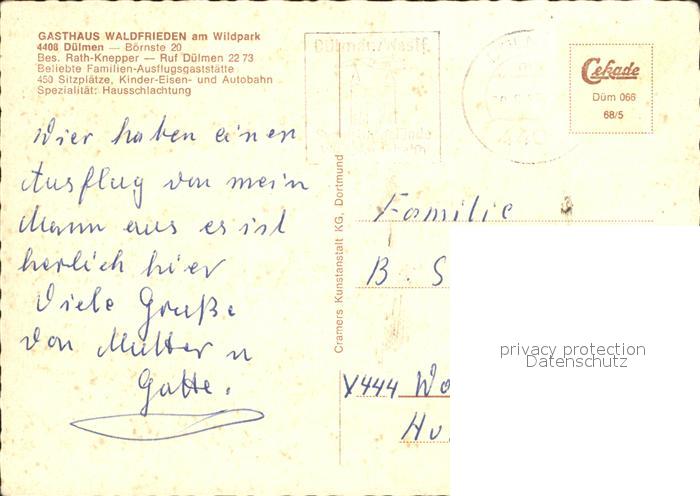 GASTHAUS WALDFRIEDEN am Wildpark
4408 Dülmen — Börnste 20
Bes. Rath-Knepper — Ruf Dülmen 22 73
Beliebte Familien-Ausflugsgaststätte
450 Sitzplätze, Kinder-Eisen- und Autobahn
Spezialität: Hausschlachtung
Wier haben einen
Ausflug von mein
Mann aus es ist
herlich hier
Viele Gruße
von Mutter u
Gatte.
Cramers Kunstanstalt KG, Dortmund
Cekade
Düm 066
68/5
Familie
B. S
4444 Wo
privacy protection
Datenschutz